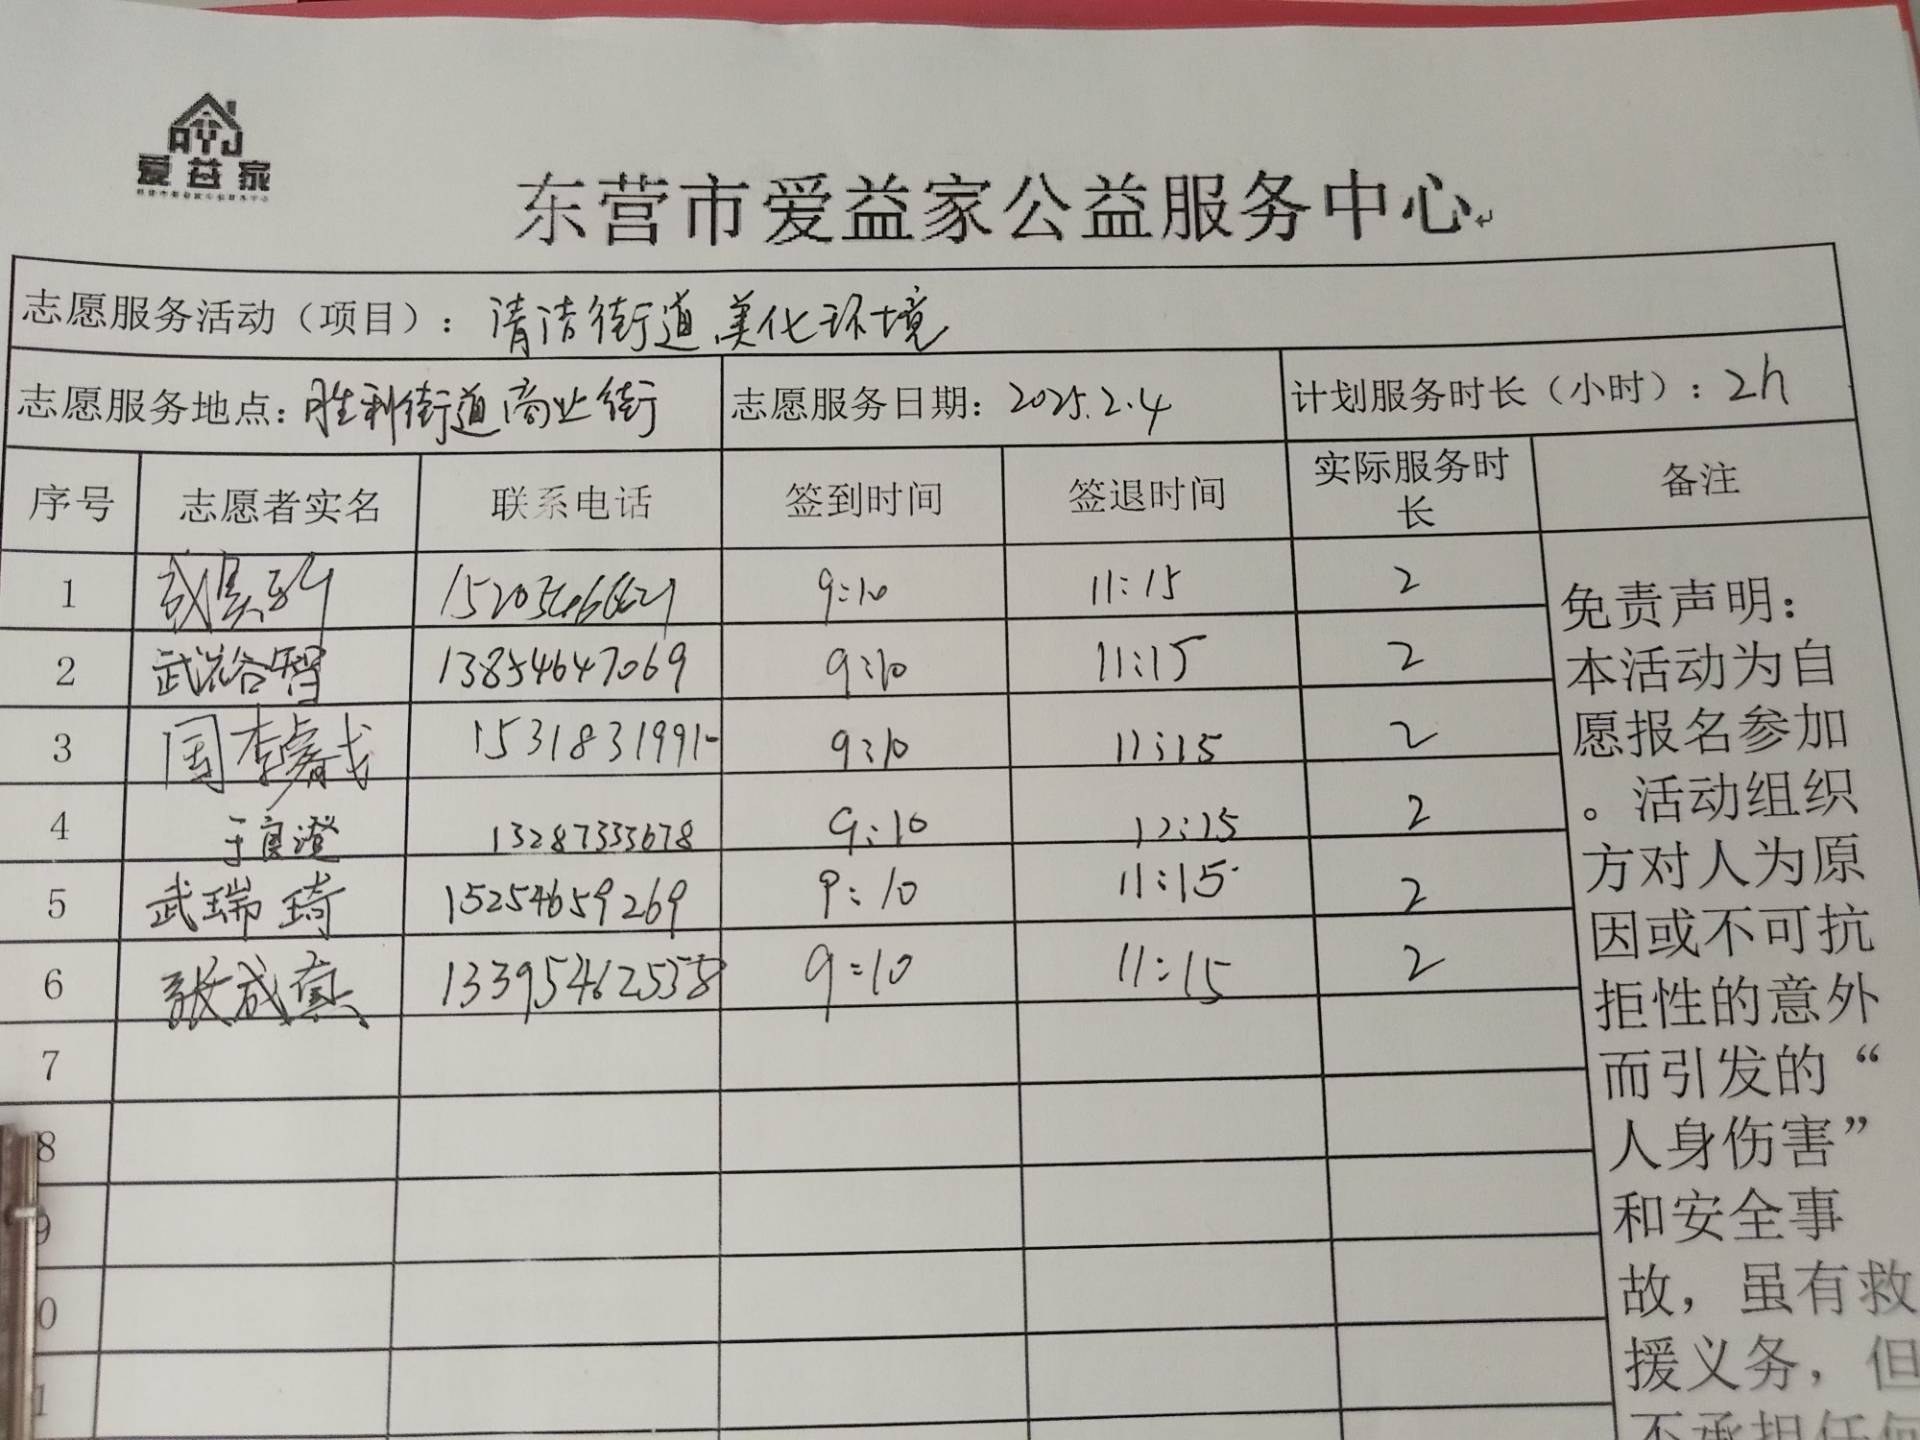 AYJ
爱益家
东营市爱益家公益服务中心
志愿服务活动（项目）：清洁街道美化环境
志愿服务地点：胜利街道商业街 志愿服务日期：2025.2.4 计划服务时长（小时）：2h
序号 志愿者实名 联系电话 签到时间 签退时间 实际服务时长 备注
1 9:10 11:15 2
2 武裕智 13854647069 9:10 11:15 2
3 国李睿戈 9:10 11:15 2
4 于良澄 13287333678 9:10 2
5 武瑞琦 15254659269 9:10 11:15 2
6 张成真 13395462558 9:10 11:15 2
7
8
9
0
1
免责声明：
本活动为自
愿报名参加
。活动组织
方对人为原
因或不可抗
拒性的意外
而引发的“
人身伤害”
和安全事
故，虽有救
援义务，但
不承担任何